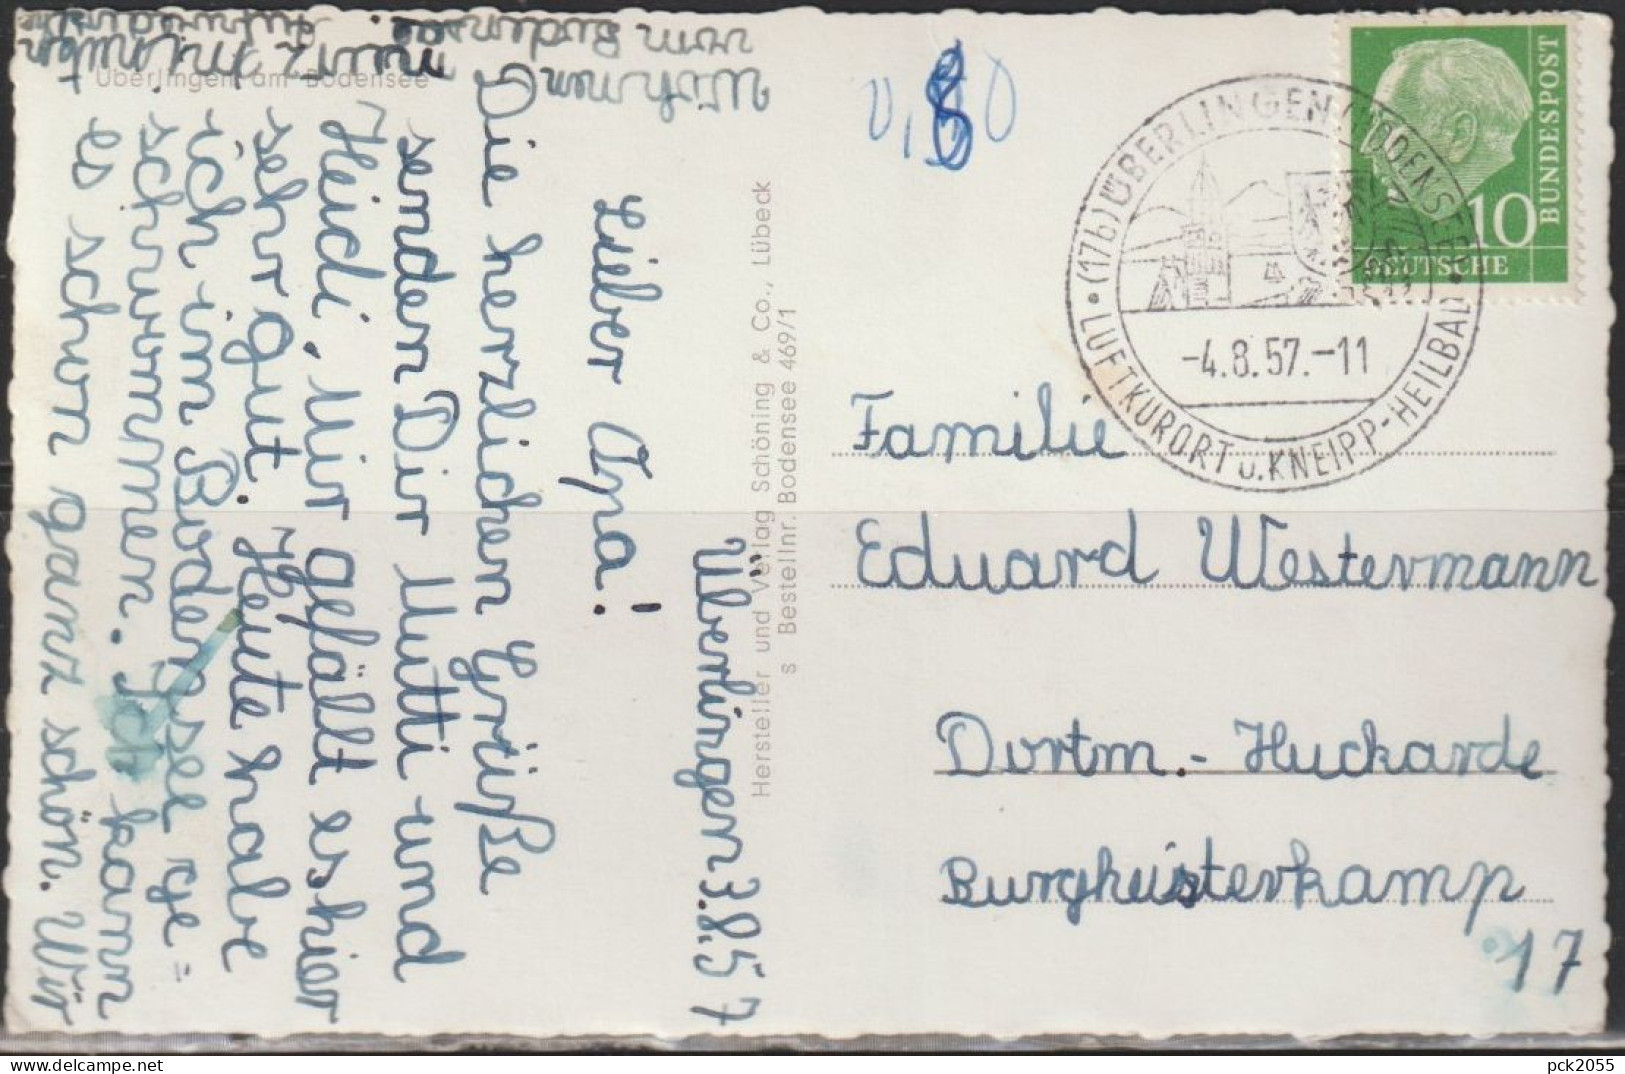 Überlingen am Bodensee
Überlingen 3.8.57
Lieber Opa!
Die herzlichen Grüße
senden Dir Mutti und
Heidi. Mir gefällt es hier
sehr gut. Heute habe
ich im Bodensee ge=
schwommen. Ich kann
es schon ganz schön. Wir
vom Bodensee
Hersteller und Verlag Schöning & Co., Lübeck
s Bestellnr. Bodensee 469/1
0,80
(17b) ÜBERLINGEN (BODENSEE)
LUFTKURORT u. KNEIPP-HEILBAD
-4.8.57.-11
10
DEUTSCHE
BUNDESPOST
Familie
Eduard Westermann
Dortm.-Huckarde
Burgheisterkamp
17
pck2055